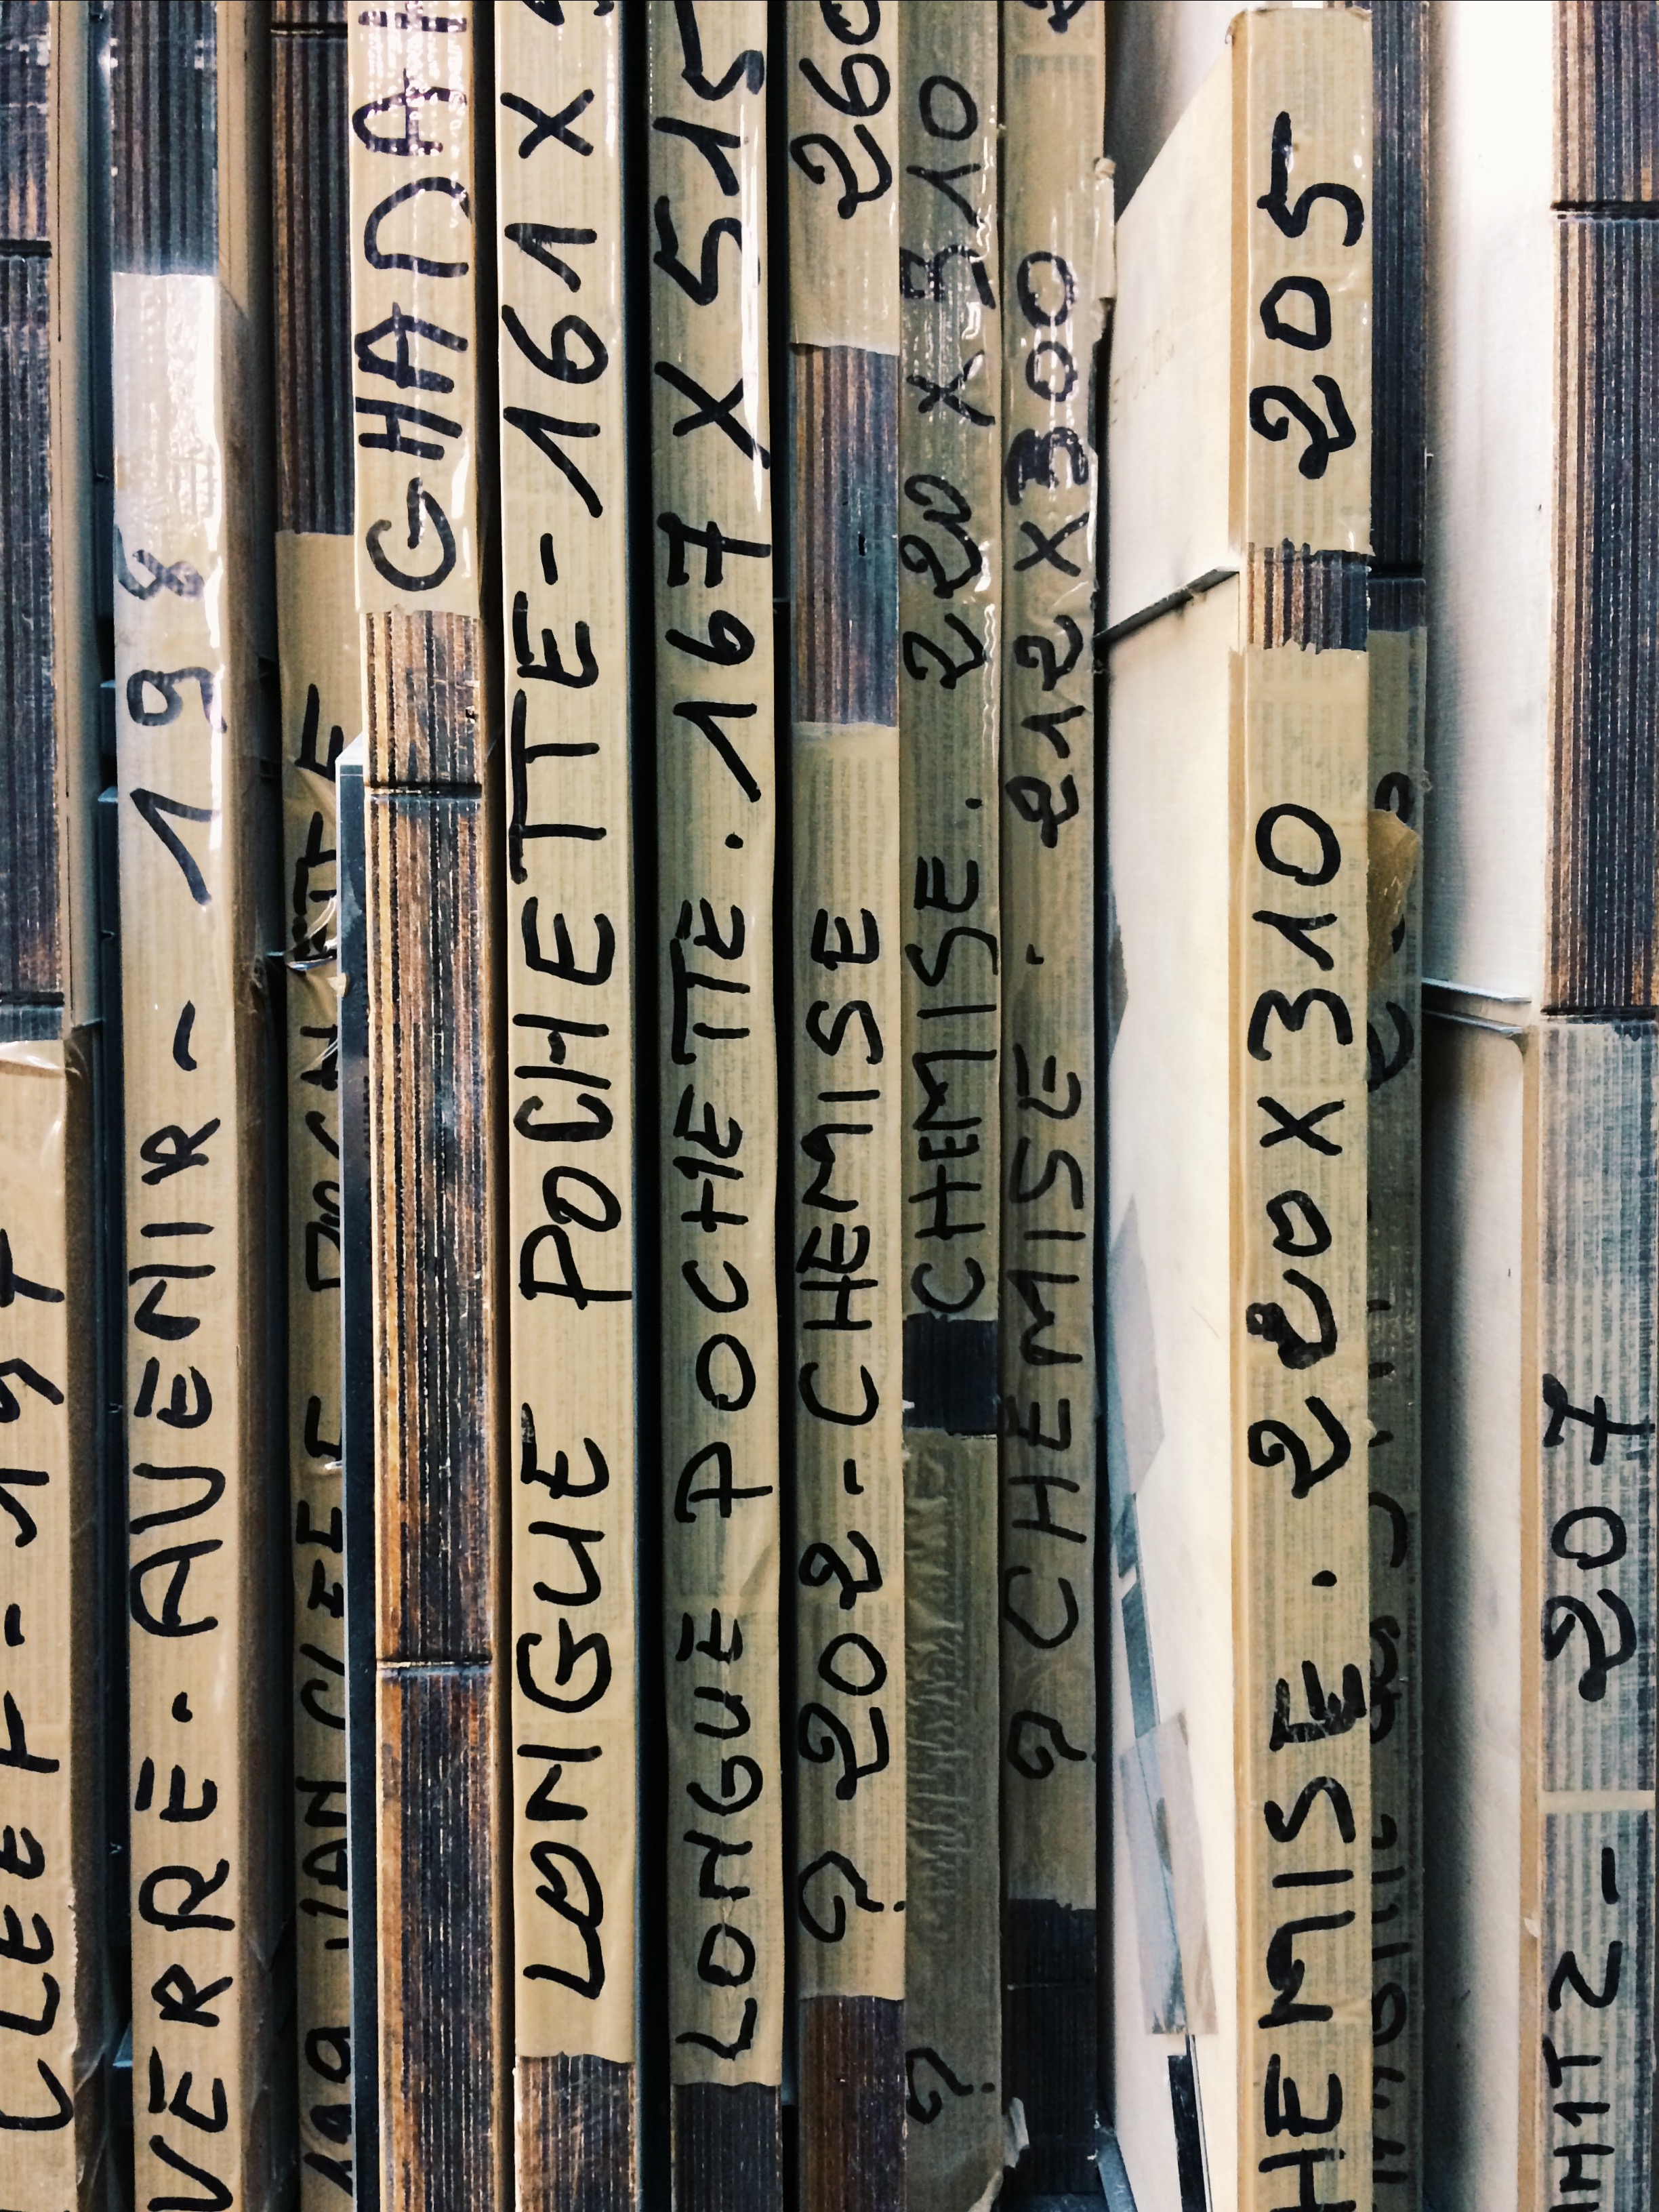 CLEE F - 197
VERRE. AVENIR - 198
199
GHADA
LONGUE POCHETTE - 161 X
LONGUE POCHETTE . 167 X 515
? 202 - CHEMISE 260
? CHEMISE . 220 X 310
? CHEMISE . 212 X 300
HEMISE . 220 X 310 205
207